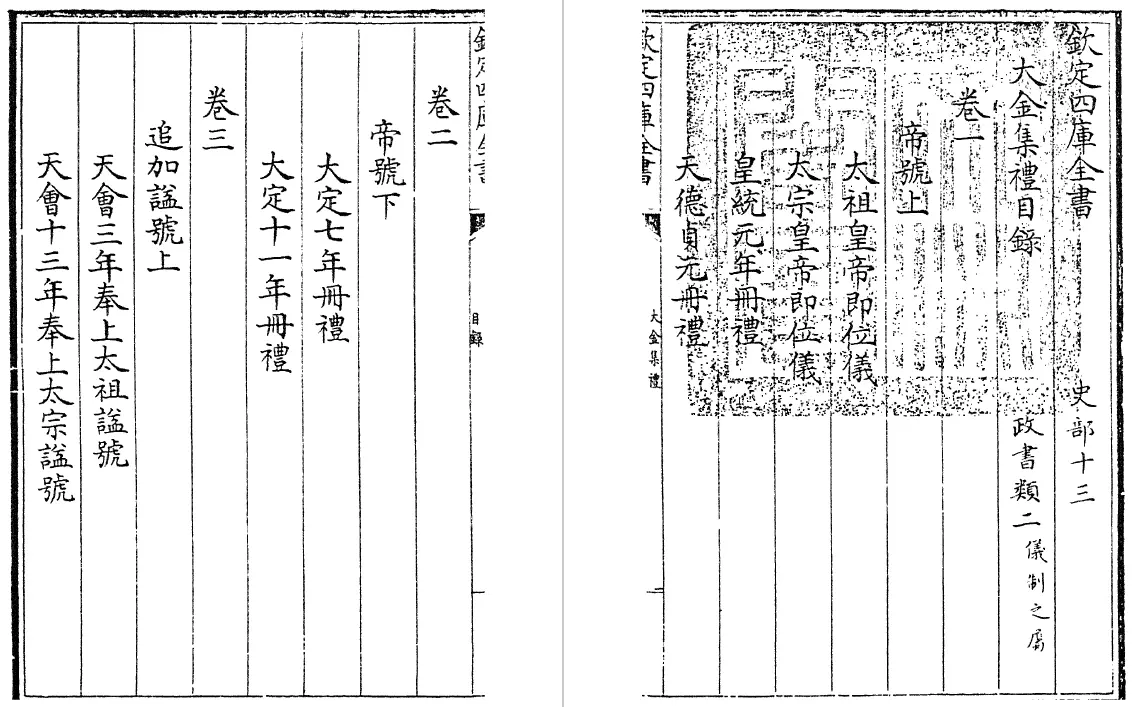 欽定四庫全書 史部十三
大金集禮目錄 政書類二儀制之屬
卷一
帝號上
太祖皇帝即位儀
太宗皇帝即位儀
皇統元年冊禮
天德貞元冊禮
欽定四庫全書 大金集禮
欽定四庫全書 目錄
卷二
帝號下
大定七年冊禮
大定十一年冊禮
卷三
追加諡號上
天會三年奉上太祖諡號
天會十三年奉上太宗諡號